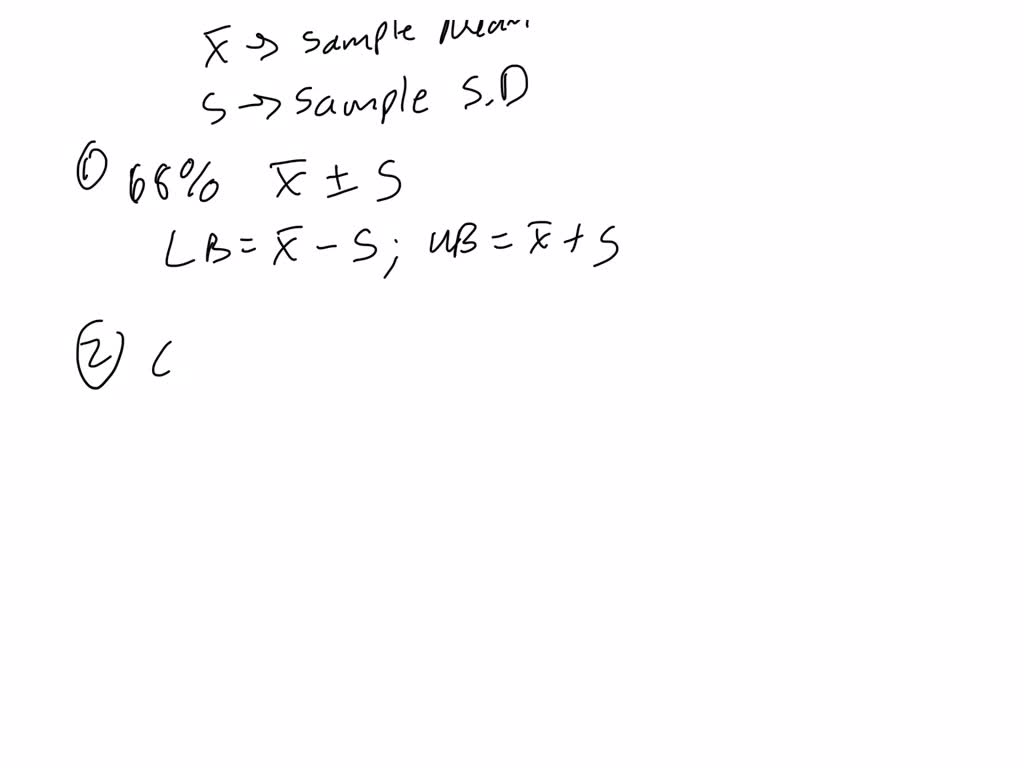 x̄ → sample mean
S → sample S.D
① 68% x̄ ± S
LB = x̄ - S; UB = x̄ + S
② (